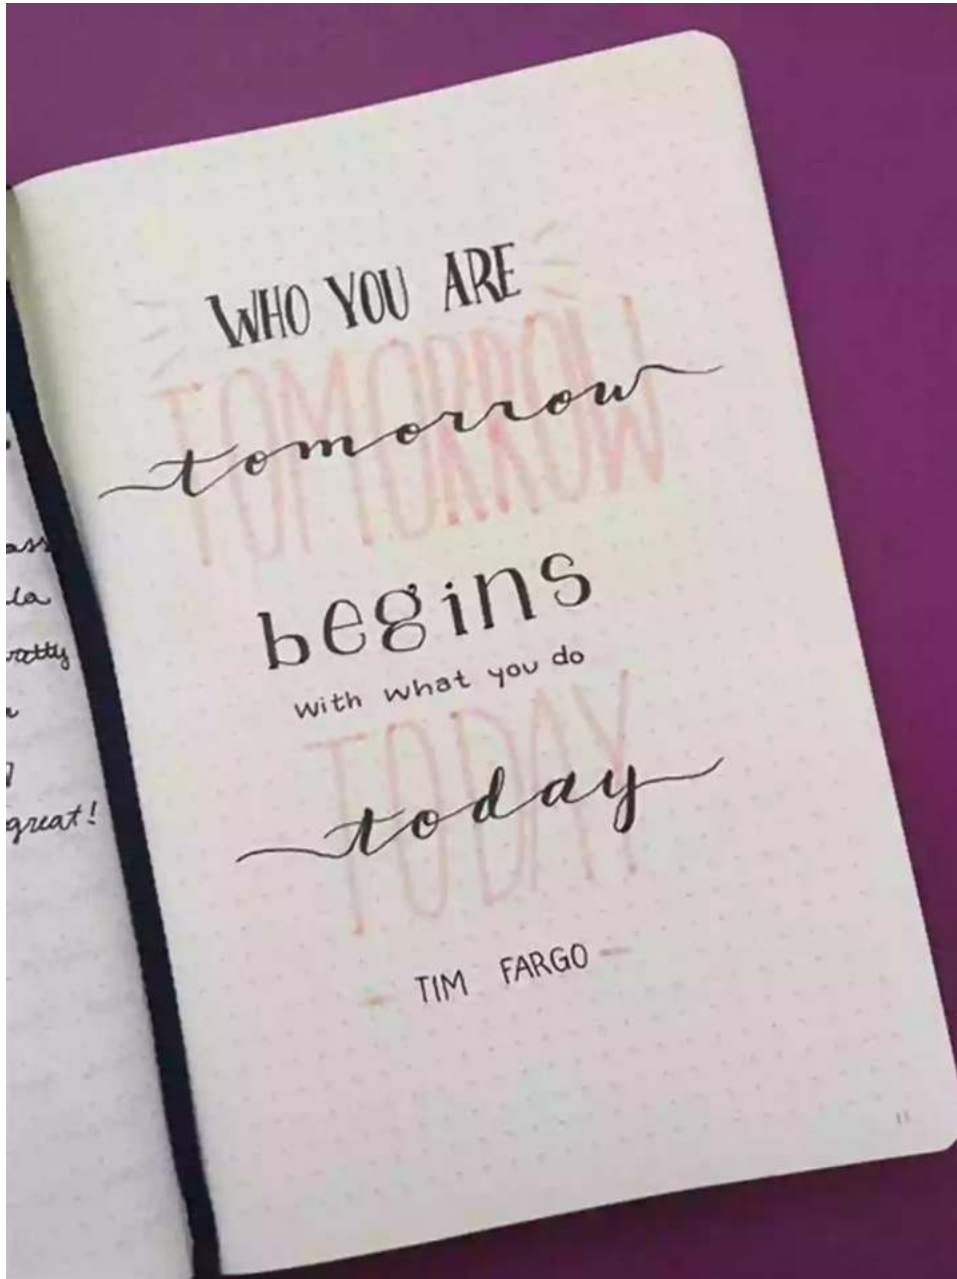 WHO YOU ARE
TOMORROW
tomorrow
begins
with what you do
TODAY
today
- TIM FARGO -
11
la
great!